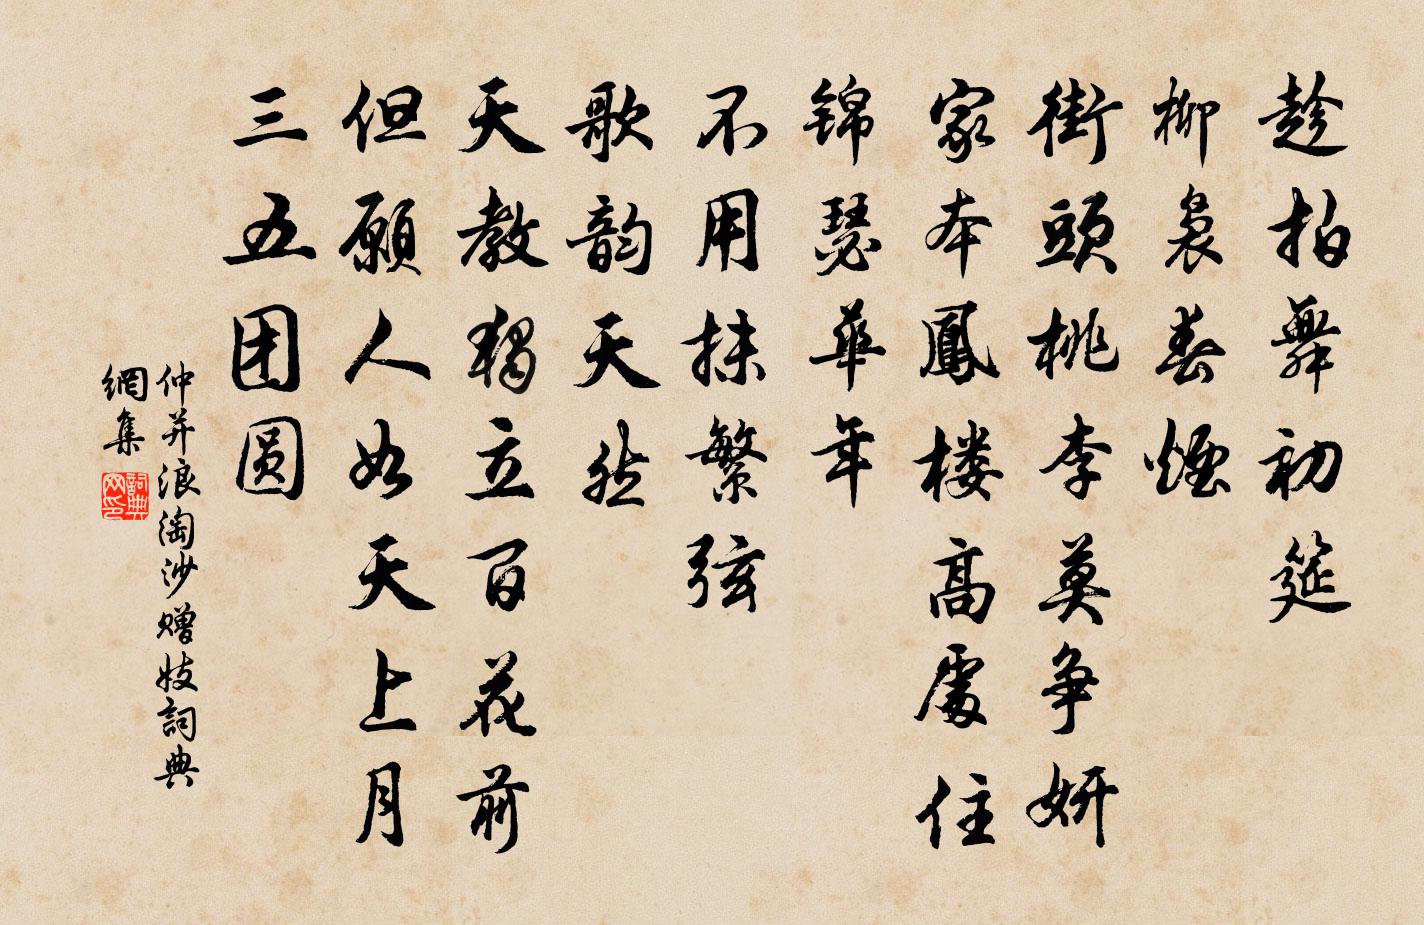 趁拍舞初筵
柳裊春煙
街頭桃李莫争妍
家本鳳楼高處住
锦瑟華年
不用抹繁弦
歌韵天然
天教独立百花前
但願人如天上月
三五团圆
仲并浪淘沙赠妓詞典
網集
詞典
网印